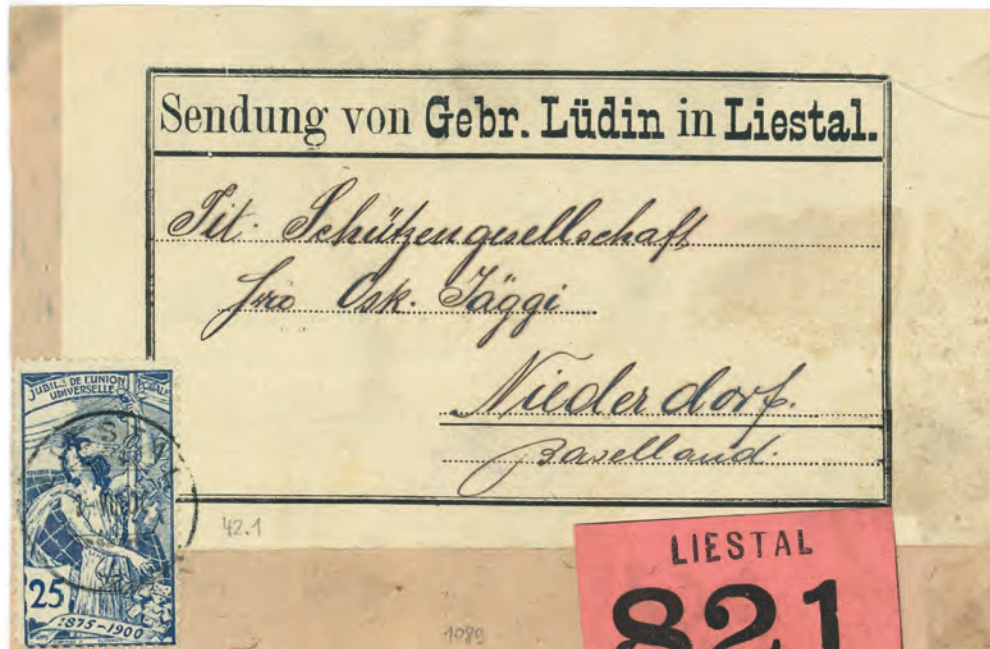 Sendung von Gebr. Lüdin in Liestal.
Tit. Schützengesellschaft
pro Osk. Jäggi
Niederdorf.
Baselland.
JUBILÉ DE L'UNION POSTALE
UNIVERSELLE
25
1875-1900
42.1
1089
LIESTAL
821